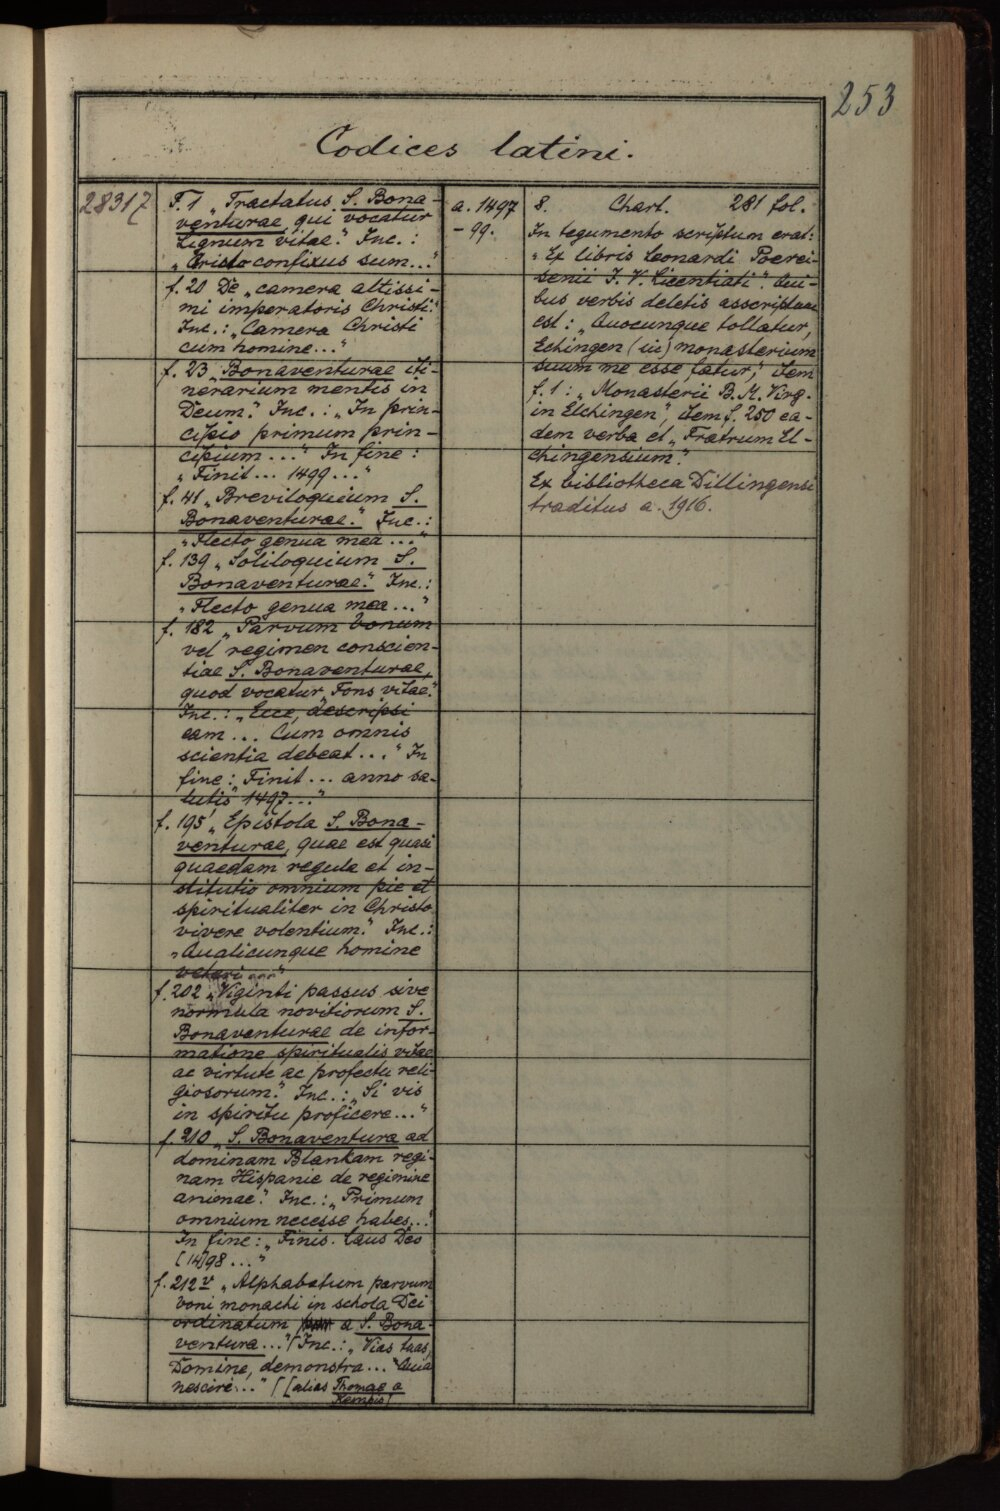 253
Codices latini.
28317
F. 1 „Tractatus S. Bona-
venturae, qui vocatur
Lignum vitae." Inc.:
„Cristo confixus sum..."
f. 20 De „camera altissi-
mi imperatoris Christi."
Inc.: „Camera Christi
cum homine..."
f. 23 „Bonaventurae iti-
nerarium mentis in
Deum." Inc.: „In prin-
cipio primum prin-
cipium..." In fine:
„Finit... 1499..."
f. 41 „Breviloquium S.
Bonaventurae." Inc.:
„Flecto genua mea..."
f. 139 „Soliloquium S.
Bonaventurae." Inc.:
„Flecto genua mea..."
f. 182 „Parvum bonum
vel regimen conscien-
tiae S. Bonaventurae,
quod vocatur „Fons vitae."
Inc.: „Ecce, descripsi
eam... Cum omnis
scientia debeat..." In
fine: „Finit... anno sa-
lutis 1497..."
f. 195 „Epistola S. Bona-
venturae, quae est quasi
quaedam regula et in-
stitutio omnium pie et
spiritualiter in Christo
vivere volentium." Inc.:
„Qualicunque homine
veteri..."
f. 202 „Viginti passus sive
normula novitiorum S.
Bonaventurae de infor-
matione spiritualis vitae
ac virtute ac profectu reli-
giosorum." Inc.: „Si vis
in spiritu proficere..."
f. 210 „S. Bonaventura ad
dominam Blankam regi-
nam Hispanie de regimine
animae." Inc.: „Primum
omnium necesse habes..."
In fine: „Finis. Laus Deo
[14]98..."
f. 212v „Alphabetum parvum
boni monachi in schola Dei
ordinatum a S. Bona-
ventura..." (Inc.: „Vias tuas,
Domine, demonstra... Quia
nescire..." ( [alias Thomae a
Kempis]
a. 1497
- 99.
8. Chart. 281 fol.
In tegumento scriptum erat:
„Ex libris Leonardi Poerei-
senii I. V. Licentiati". Qui-
bus verbis deletis asscriptum
est: „Quocunque tollatur,
Echingen (sic) monasterium
suum me esse fatur", item
f. 1: „Monasterii B. M. Virg.
in Elchingen", item f. 250 ea-
dem verba et „Fratrum El-
chingensium."
Ex bibliotheca Dillingensi
traditus a. 1916.